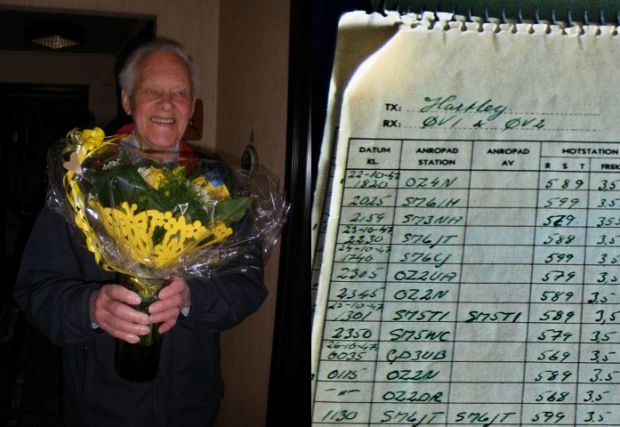 TX: Hartley
RX: ØV1 & ØV2
DATUM KL. ANROPAD STATION ANROPAD AV MOTSTATION
R S T FREK
22-10-47
1820 OZ4N 589 3.5
2025 SM6IH 599 3.5
2159 SM3NA 579 355
23-10-47
2230 SM6JT 588 3.5
24-10-47
1740 SM6CJ 599 3.5
2305 OZ2UA 579 3.5
2345 OZ2N 589 3.5
25-10-47
1301 SM5TI SM5TI 589 3,5
2350 SM5WC 579 3.5
26-10-47
0035 GD3UB 569 3.5
0115 OZ2N 589 3.5
-"- OZ2DR 568 3.5
1130 SM6JT SM6JT 599 3.5